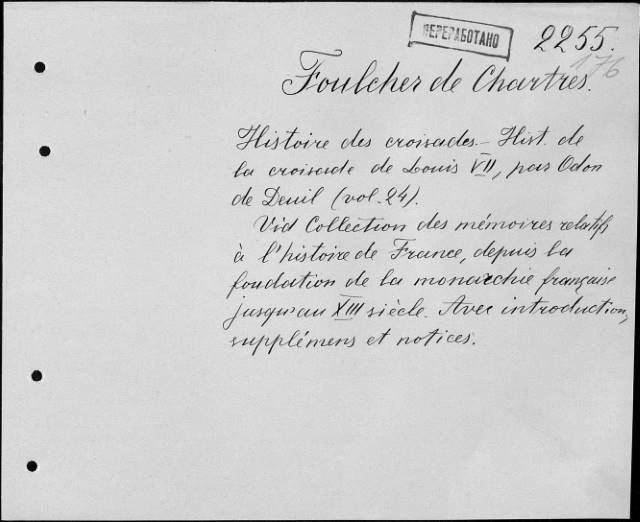 ПЕРЕРАБОТАНО
2255.
176
Foulcher de Chartres.
Histoire des croisades.- Hist. de
la croisade de Louis VII, par Odon
de Deuil (vol. 24).
Vid Collection des mémoires relatifs
à l'histoire de France, depuis la
fondation de la monarchie française
jusqu'au XIII siècle. Avec introduction,
supplémens et notices.